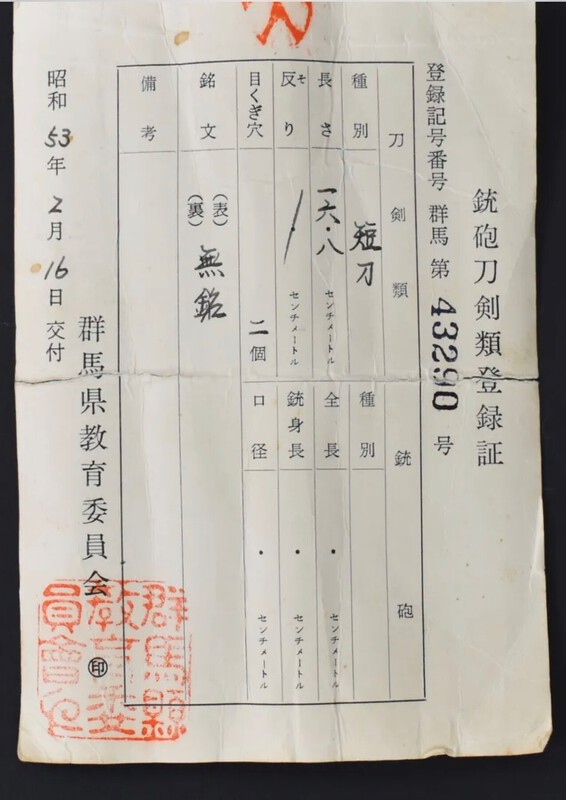 銃砲刀剣類登録証
登録記号番号 群馬 第 43290 号
刀剣類
銃砲
種別 短刀
種別
長さ 一六・八 センチメートル
全長 ・ センチメートル
反り そ センチメートル
銃身長 ・ センチメートル
目くぎ穴 二個
口径 ・ センチメートル
銘文 (表) 無銘
(裏)
備考
昭和 53 年 2 月 16 日 交付
群馬県教育委員会 印
群馬縣
教育委
員會之